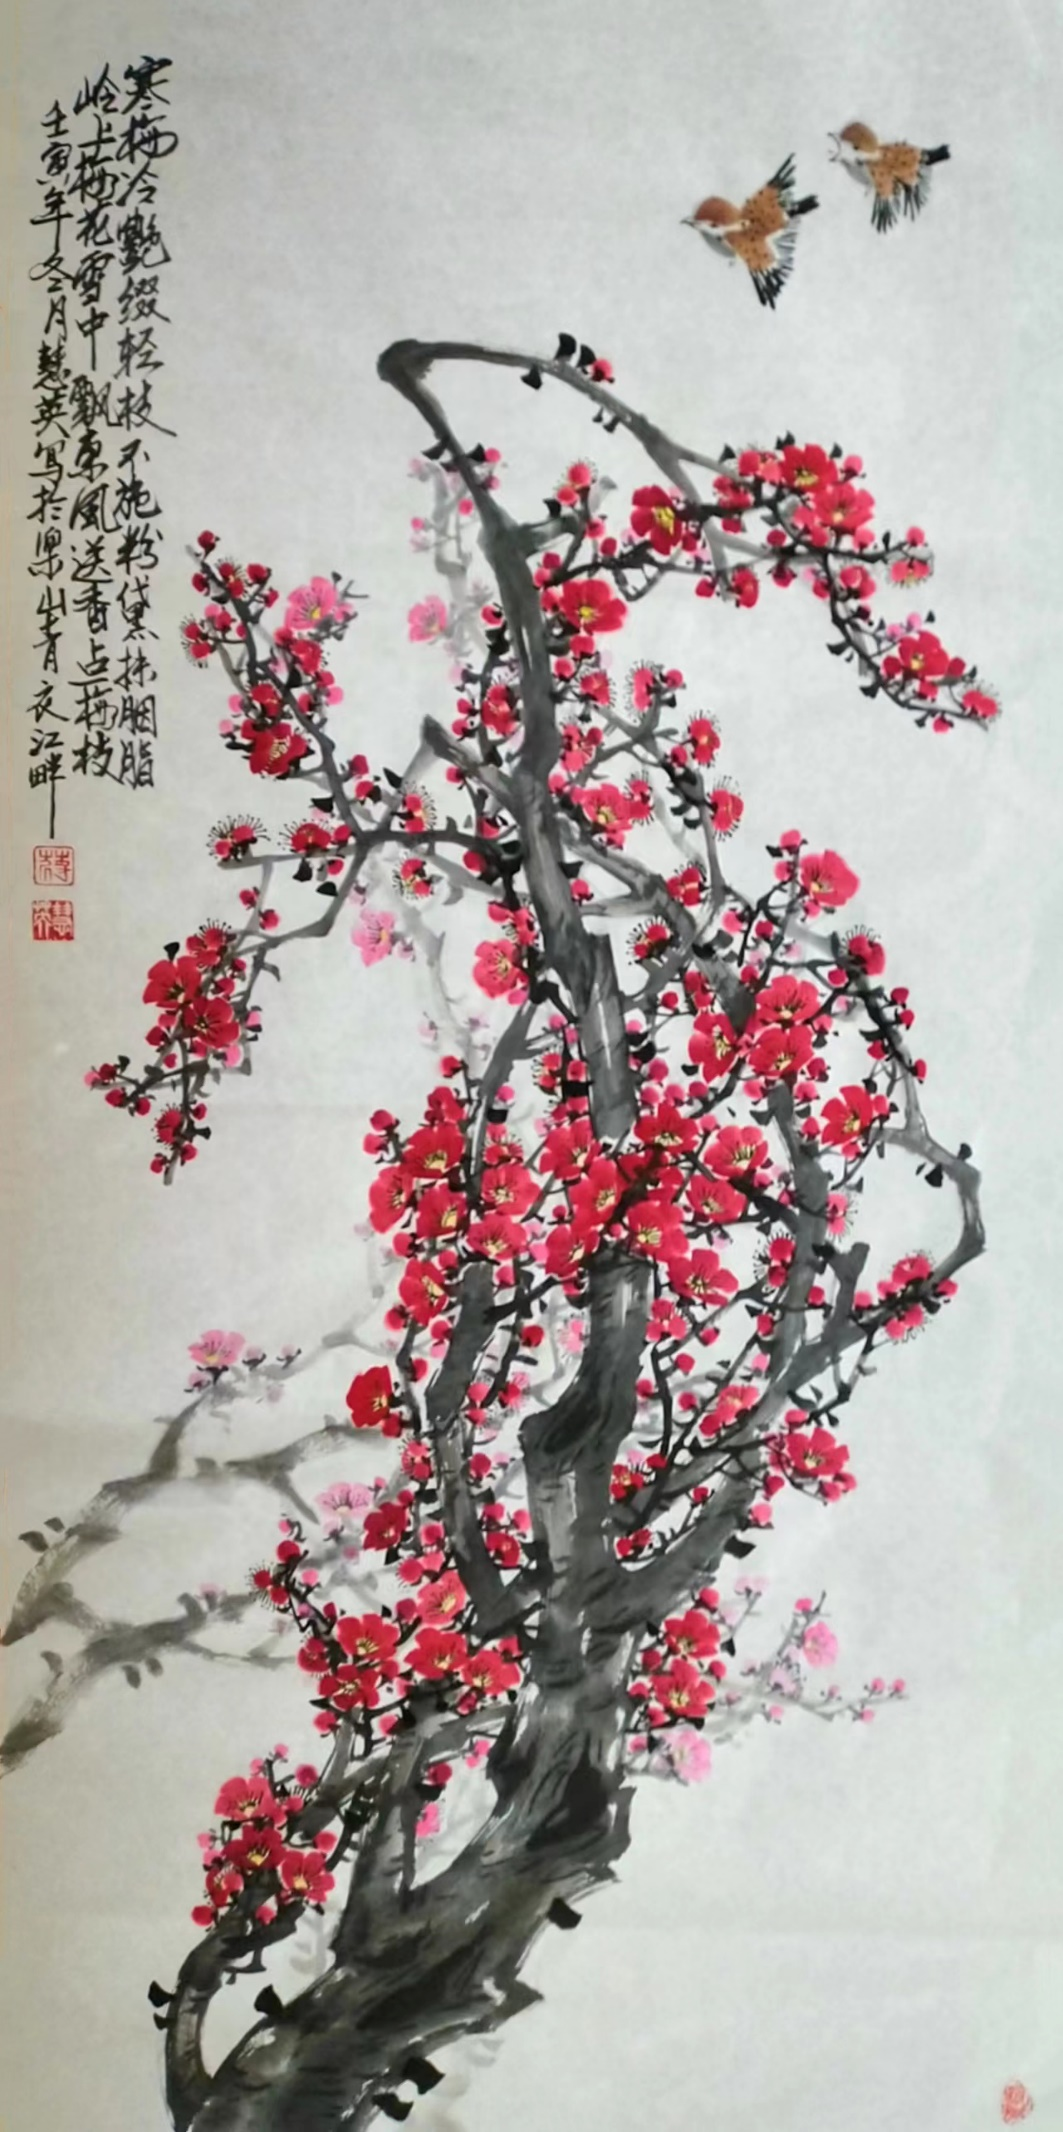 寒梅冷艳缀轻枝不施粉黛抹胭脂
岭上梅花雪中飘东风送香占梅枝
壬寅年冬月慧英写於乐山青衣江畔